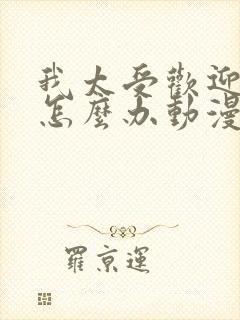 我太受歡迎
怎麼办動漫
羅京運